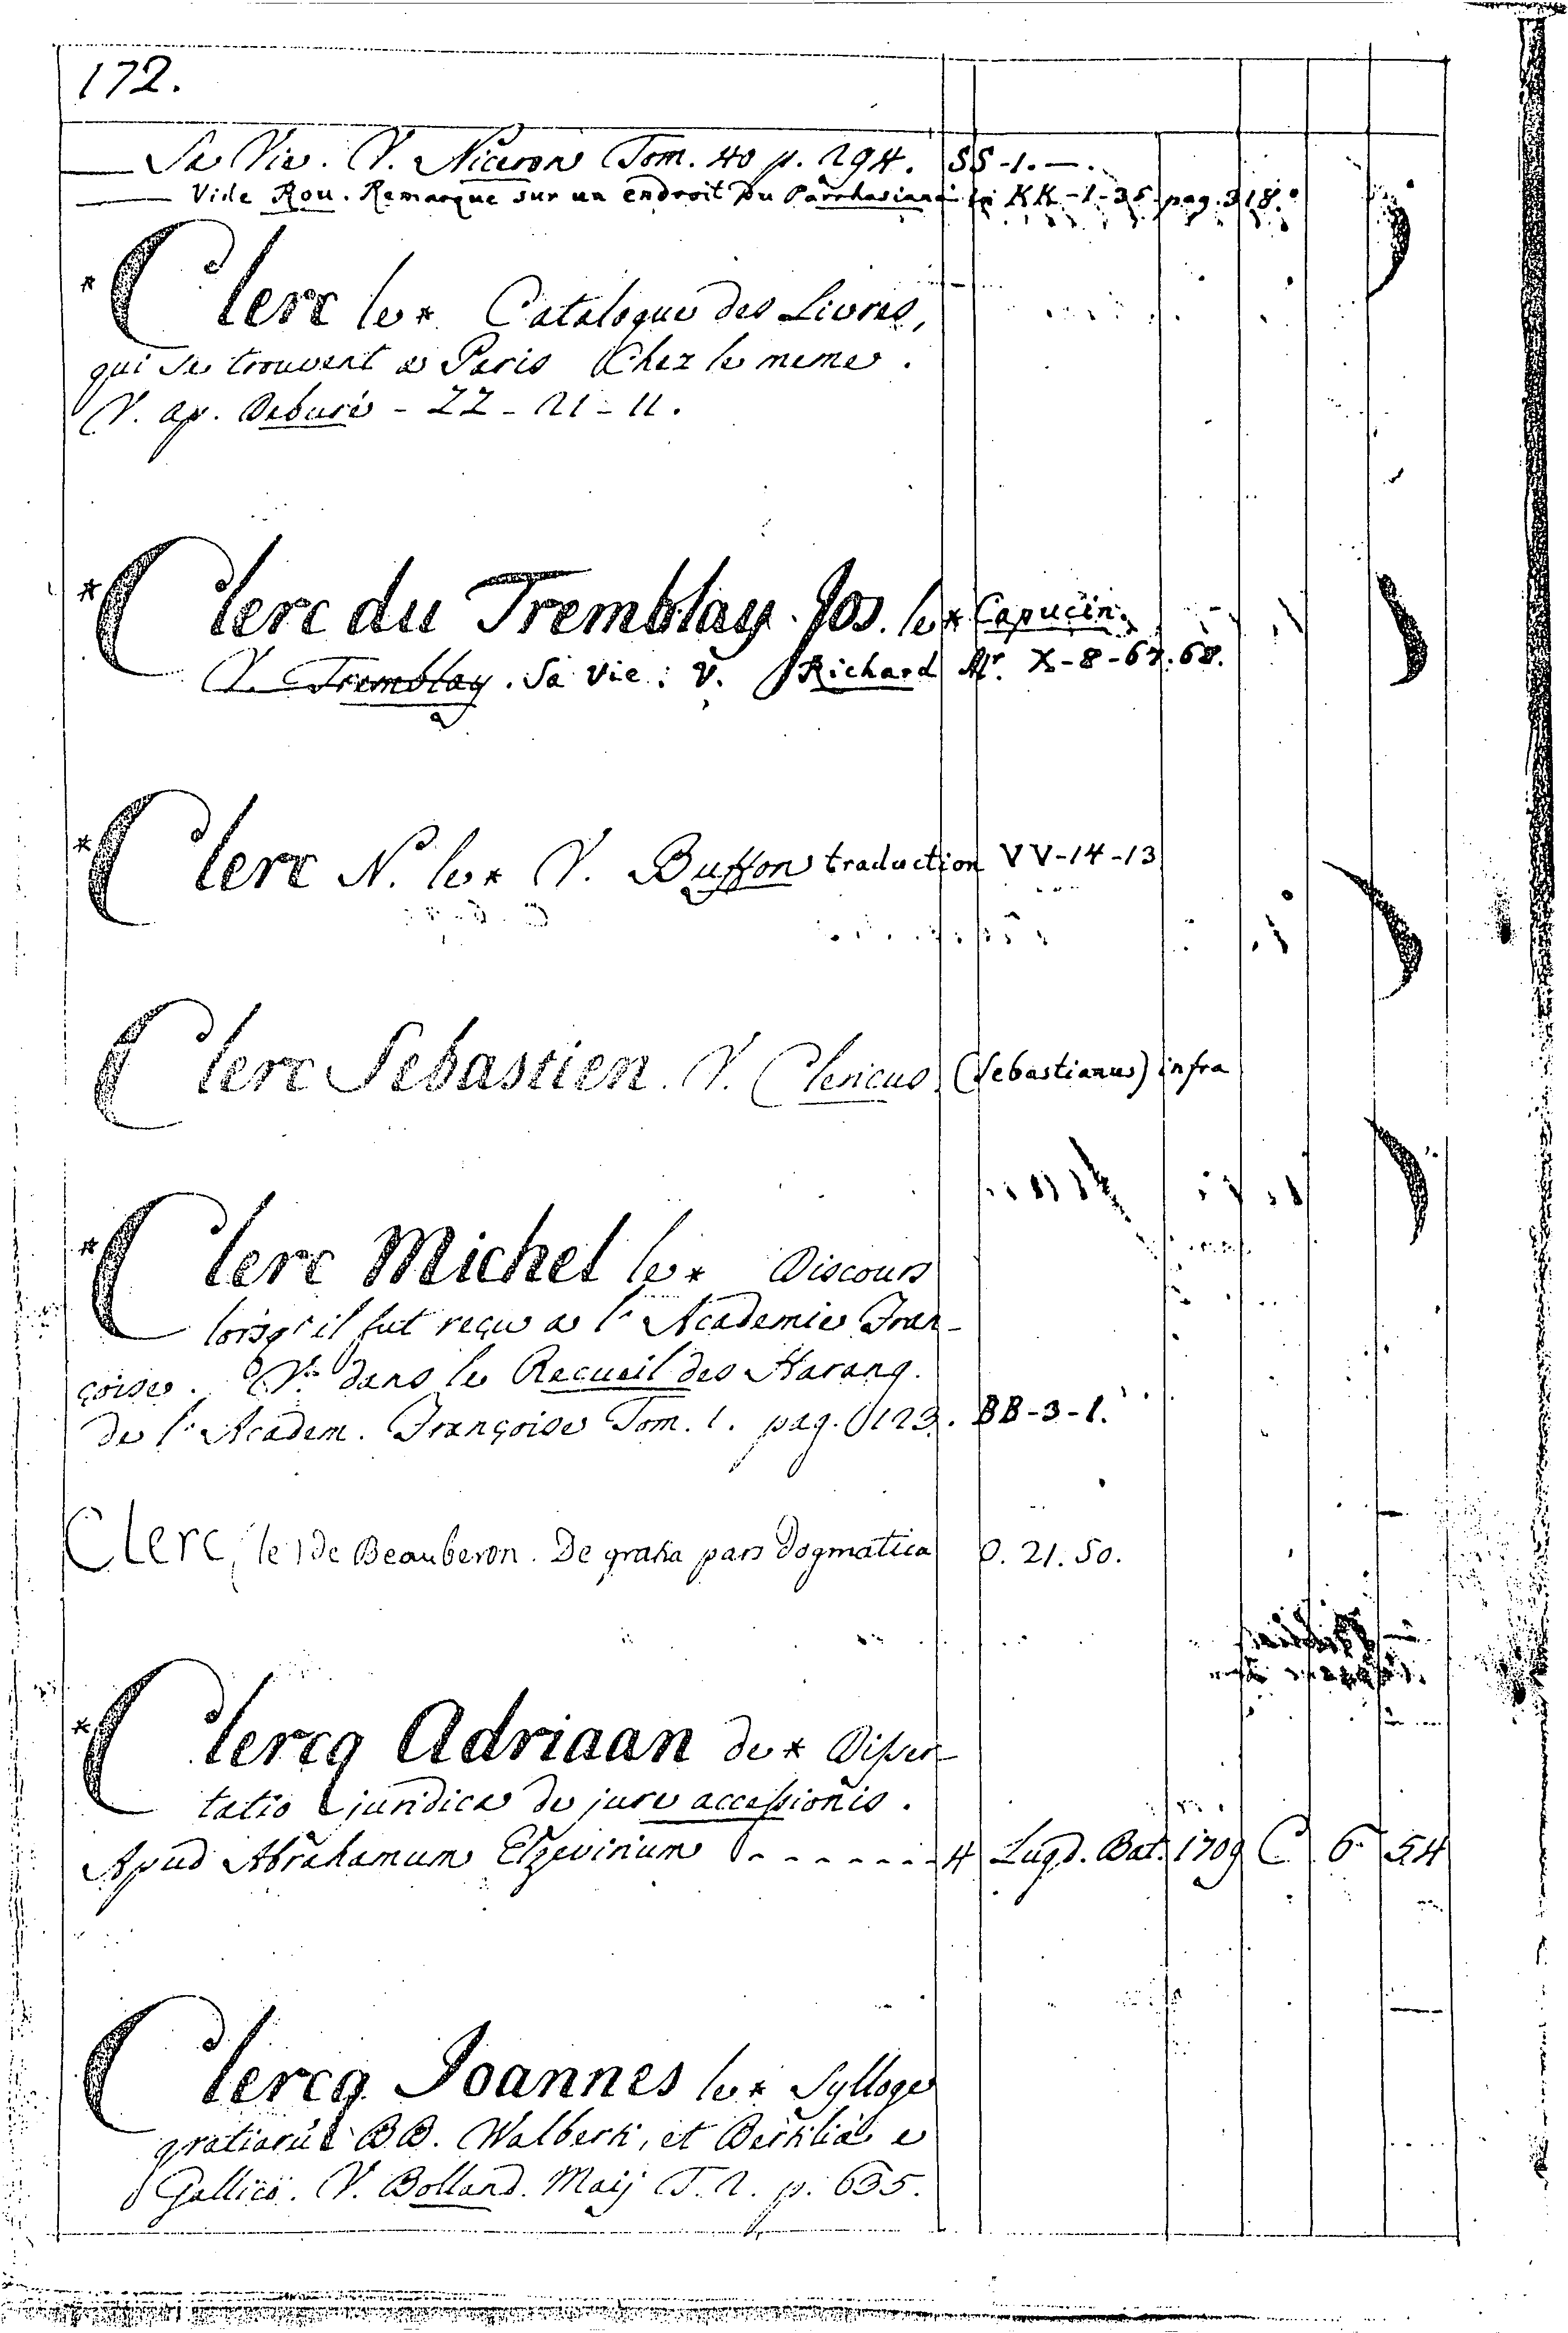 172.
— Sa Vie. V. Niceron Tom. 40 p. 294. SS-1.—.
— Vide Rou. Remarque sur un endroit Du Parrhasiana in KK-1-35 pag. 318.
* Clerc le * Catalogue des Livres,
qui se trouvent a Paris Chez le meme.
V. ap. Deburé - ZZ - 21 - 11.
* Clerc du Tremblay Jos. le * Capucin.
V. Tremblay. Sa Vie: V. Richard Mr. X-8-67.68.
* Clerc N. le * V. Buffon traduction VV-14-13
Clerc Sebastien. V. Clericus (Sebastianus) infra
* Clerc Michel le * Discours
lorsqu'il fut reçu a l'Academie Fran-
çoise. V. dans le Recueil des Harang.
de l'Academ. Françoise Tom. 1. pag. 123. BB-3-1.
Clerc, (le) de Beauberon. De gratia pars dogmatica O. 21. 50.
* Clercq Adriaan de * Disser-
tatio juridica de jure accessionis.
Apud Abrahamum Elzevirium - - - - - - - 4 Lugd. Bat. 1709 C 6 54
Clercq Joannes le * Sylloge
gratiarū BB. Walberti, et Bertiliæ e
Gallico. V. Bolland. Maij T. 2. p. 635.